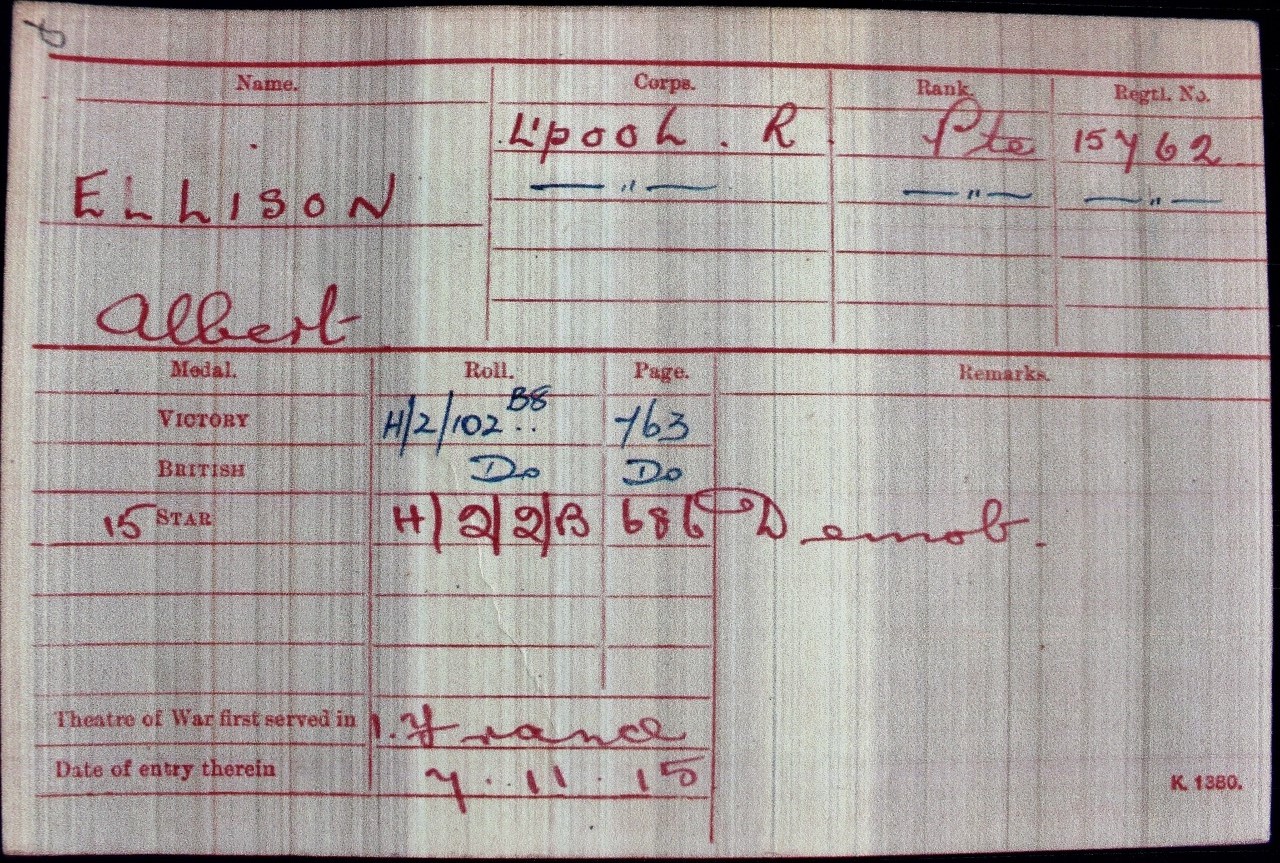 Name. Corps. Rank. Regtl. No.
L'pool. R. Pte 15762
ELLISON — " — — " — — " —
Albert
Medal. Roll. Page. Remarks.
VICTORY H/2/102 B8 .. 763
BRITISH Do Do
15 STAR H/2/2/B 686 Demob.
Theatre of War first served in 1. France
Date of entry therein 7.11.15
K. 1380.